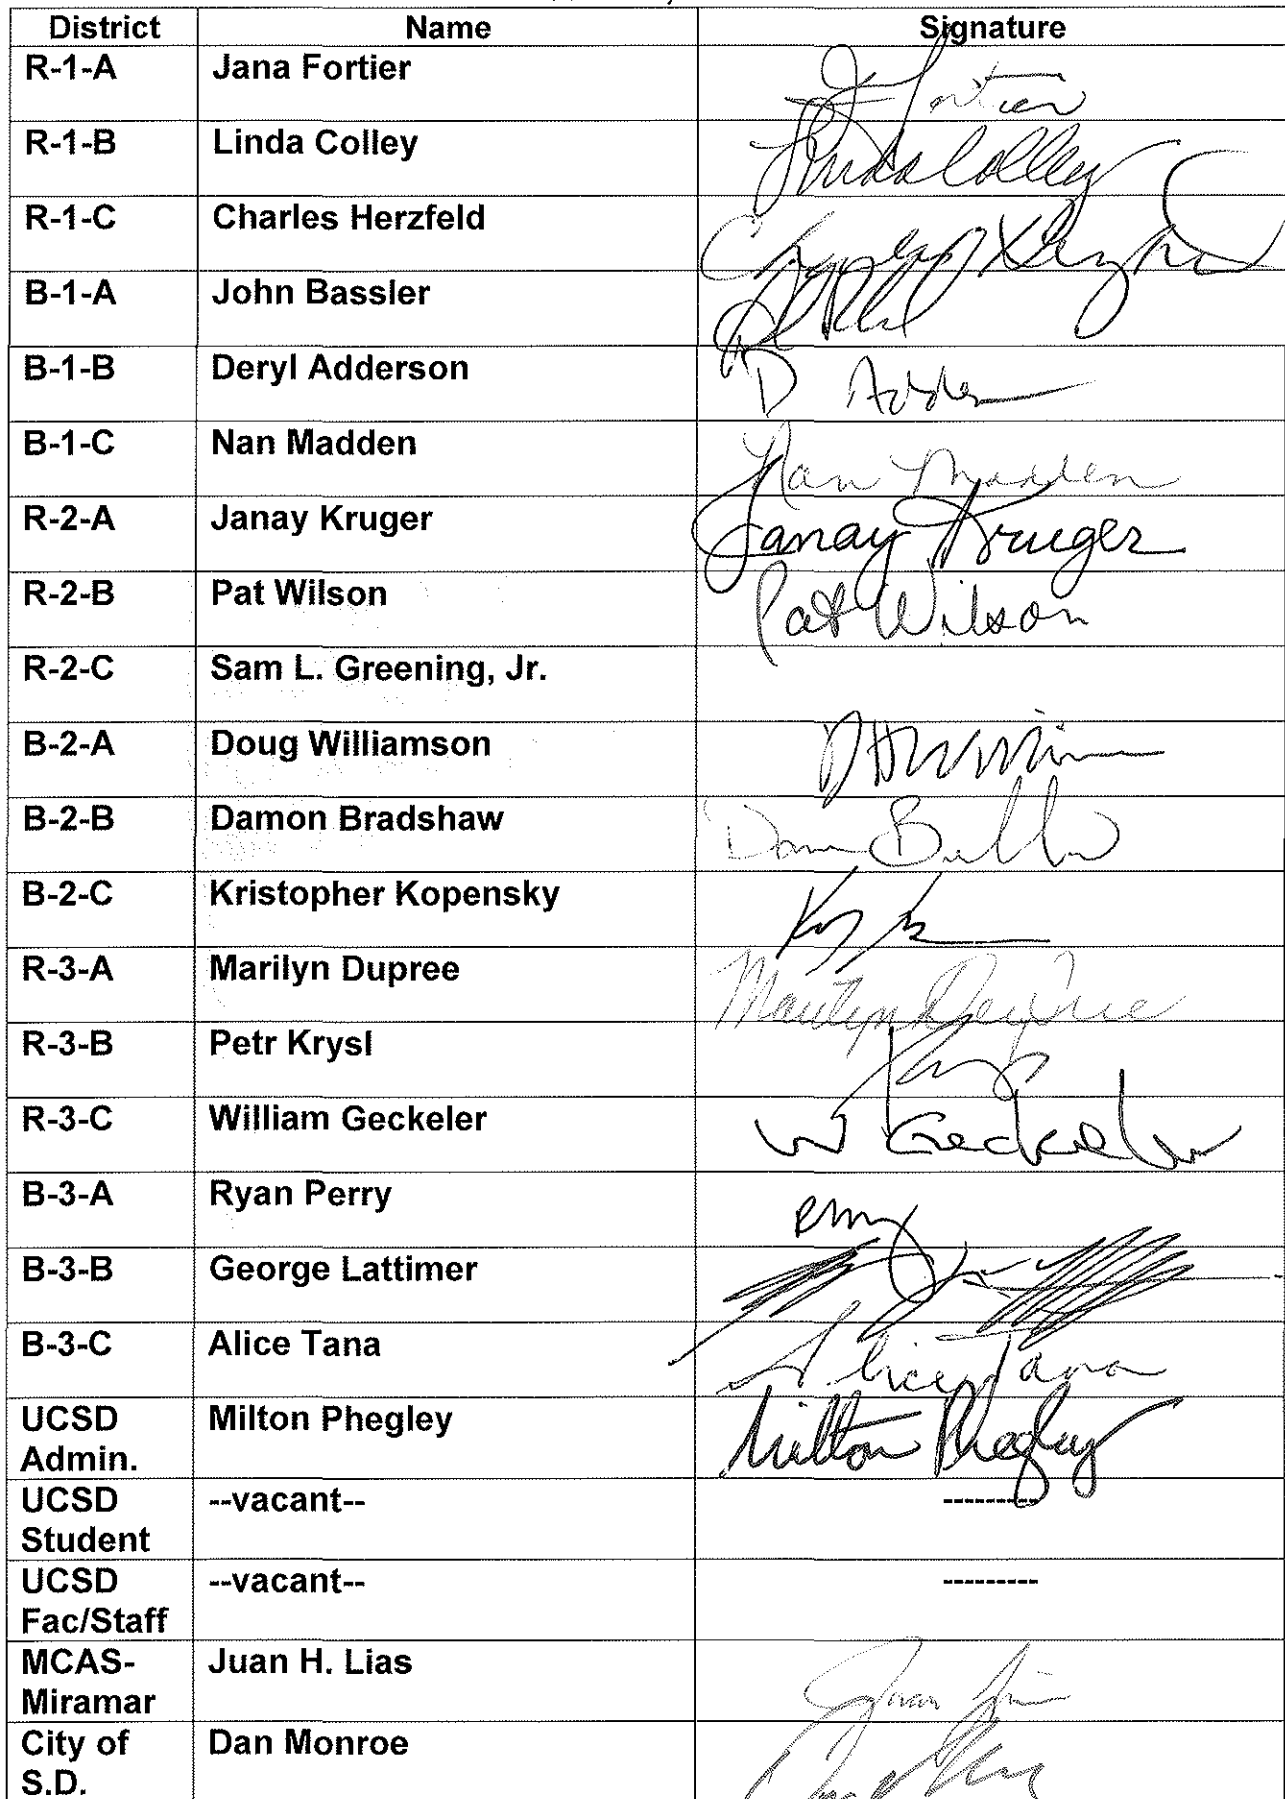 District Name Signature
R-1-A Jana Fortier J Fortier
R-1-B Linda Colley Linda Colley
R-1-C Charles Herzfeld Charles Herzfeld
B-1-A John Bassler
B-1-B Deryl Adderson D Adder
B-1-C Nan Madden Nan Madden
R-2-A Janay Kruger Janay Kruger
R-2-B Pat Wilson Pat Wilson
R-2-C Sam L. Greening, Jr.
B-2-A Doug Williamson
B-2-B Damon Bradshaw
B-2-C Kristopher Kopensky
R-3-A Marilyn Dupree Marilyn Dupree
R-3-B Petr Krysl
R-3-C William Geckeler W Geckeler
B-3-A Ryan Perry
B-3-B George Lattimer
B-3-C Alice Tana Alice Tana
UCSD Milton Phegley Milton Phegley
Admin.
UCSD --vacant-- ---------
Student
UCSD --vacant-- ---------
Fac/Staff
MCAS- Juan H. Lias Juan Lias
Miramar
City of Dan Monroe
S.D.